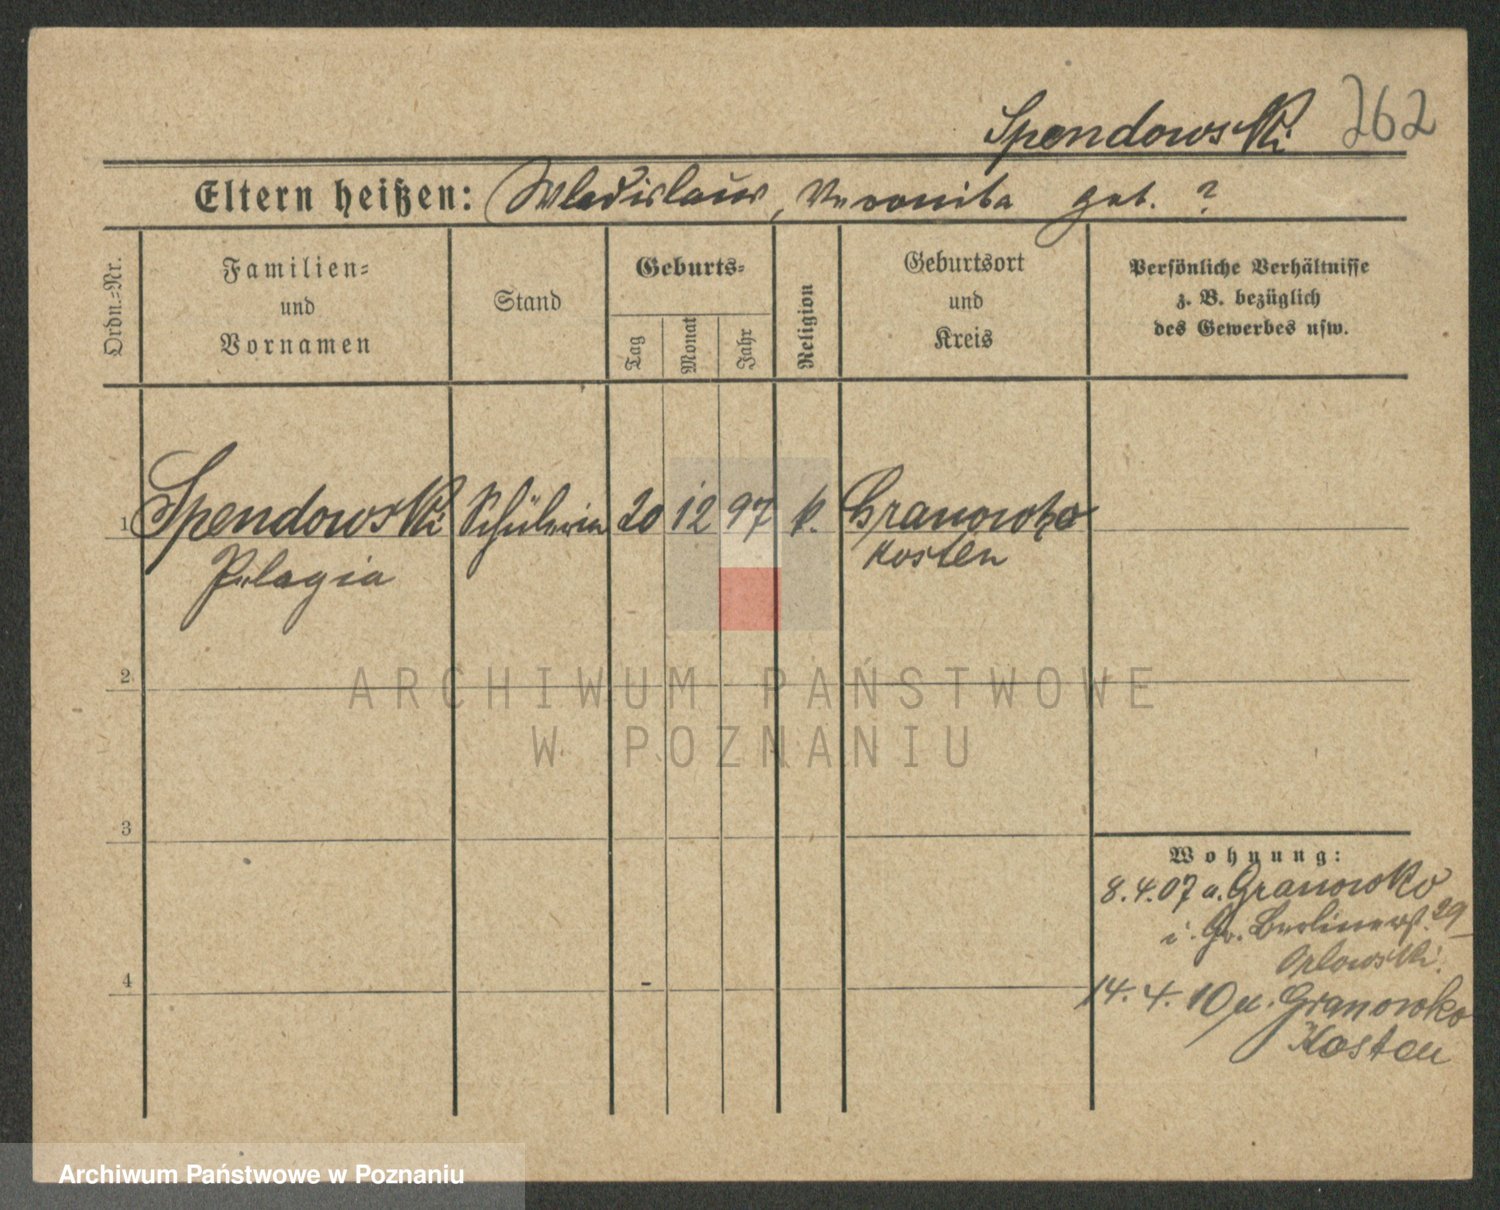 Spendowski 262
Eltern heißen: Wladislaus, Veronika geb. ?
Ordn.-Nr.
Familien-
und
Vornamen
Stand
Geburts-
Tag
Monat
Jahr
Religion
Geburtsort
und
Kreis
Persönliche Verhältnisse
z. B. bezüglich
des Gewerbes usw.
1 Spendowski Schülerin 20 12 97 k. Granowko
Pelagia Kosten
2
ARCHIWUM PAŃSTWOWE
W POZNANIU
3
Wohnung:
8.4.07 a. Granowko
i. Gr. Berlinerst. 29
Orlowski.
4
14. 4. 10 n. Granowko
Kosten
Archiwum Państwowe w Poznaniu